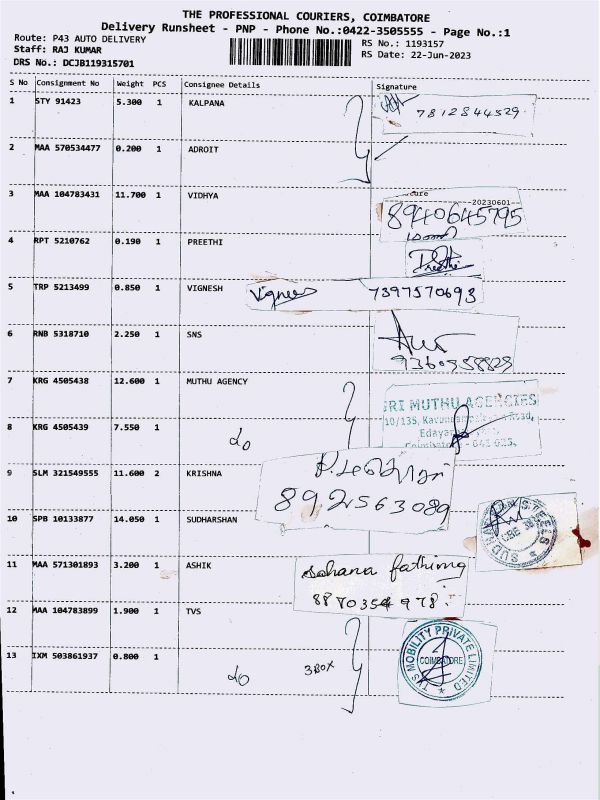 THE PROFESSIONAL COURIERS, COIMBATORE
Delivery Runsheet - PNP - Phone No.:0422-3505555 - Page No.:1
Route: P43 AUTO DELIVERY
RS No.: 1193157
Staff: RAJ KUMAR
RS Date: 22-Jun-2023
DRS No.: DCJB119315701
S No Consignment No Weight PCS Consignee Details Signature
1 STY 91423 5.300 1 KALPANA
7812844529
2 MAA 570534477 0.200 1 ADROIT
3 MAA 104783431 11.700 1 VIDHYA
20230601
8940645795
4 RPT 5210762 0.190 1 PREETHI
Preethi
5 TRP 5213499 0.850 1 VIGNESH Vignesh 7397570693
6 RNB 5318710 2.250 1 SNS
7 KRG 4505438 12.600 1 MUTHU AGENCY
SRI MUTHU AGENCIES
10/135, Road,
8 KRG 4505439 7.550 1 do
9 SLM 321549555 11.600 2 KRISHNA
8921563089
10 SPB 10133877 14.050 1 SUDHARSHAN
11 MAA 571301893 3.200 1 ASHIK
Sohana fathima
8870354978
12 MAA 104783899 1.900 1 TVS
TVS MOBILITY PRIVATE LIMITED
COIMBATORE
13 IXM 503861937 0.800 1 do 3 BOX